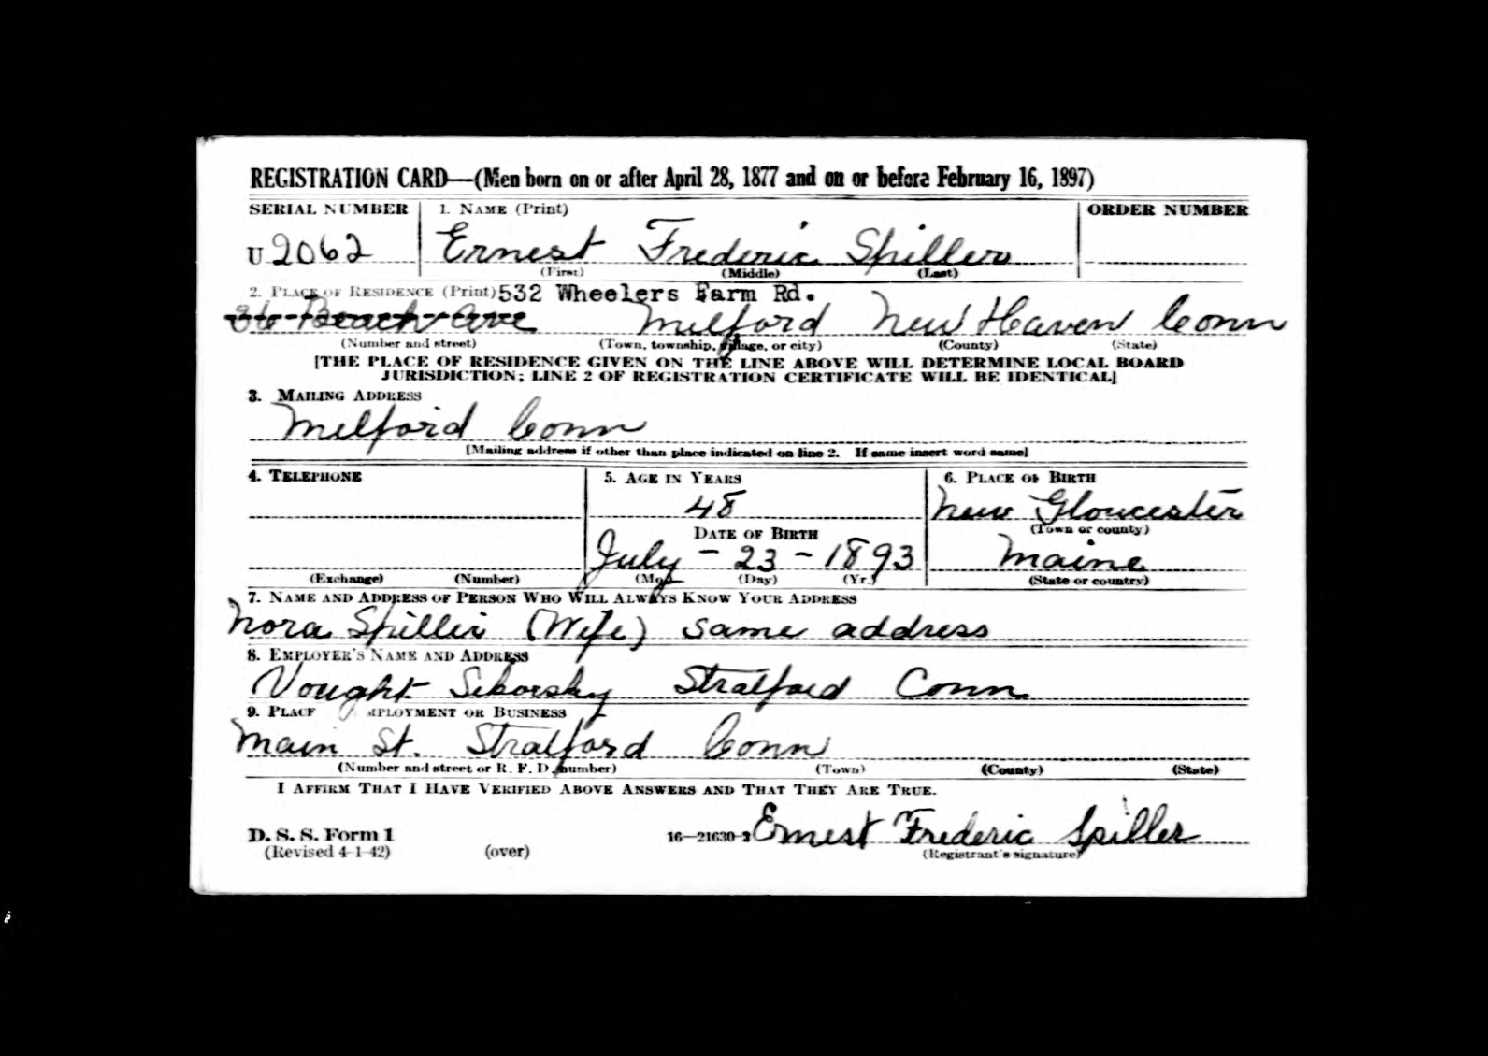 REGISTRATION CARD—(Men born on or after April 28, 1877 and on or before February 16, 1897)
SERIAL NUMBER 1. NAME (Print) ORDER NUMBER
U 2062 Ernest Frederic Spiller
(First) (Middle) (Last)
2. PLACE OF RESIDENCE (Print) 532 Wheelers Farm Rd.
36 Beach Ave Milford New Haven Conn
(Number and street) (Town, township, village, or city) (County) (State)
[THE PLACE OF RESIDENCE GIVEN ON THE LINE ABOVE WILL DETERMINE LOCAL BOARD
JURISDICTION; LINE 2 OF REGISTRATION CERTIFICATE WILL BE IDENTICAL]
3. MAILING ADDRESS
Milford Conn
[Mailing address if other than place indicated on line 2. If same insert word same]
4. TELEPHONE 5. AGE IN YEARS 6. PLACE OF BIRTH
48 New Gloucester
DATE OF BIRTH (Town or county)
July - 23 - 1893 Maine
(Exchange) (Number) (Mo.) (Day) (Yr.) (State or country)
7. NAME AND ADDRESS OF PERSON WHO WILL ALWAYS KNOW YOUR ADDRESS
Nora Spiller (Wife) same address
8. EMPLOYER'S NAME AND ADDRESS
Vought Sikorsky Stratford Conn
9. PLACE OF EMPLOYMENT OR BUSINESS
Main St. Stratford Conn
(Number and street or R. F. D. number) (Town) (County) (State)
I AFFIRM THAT I HAVE VERIFIED ABOVE ANSWERS AND THAT THEY ARE TRUE.
D. S. S. Form 1 16—21630-2 Ernest Frederic Spiller
(Revised 4-1-42) (over) (Registrant's signature)